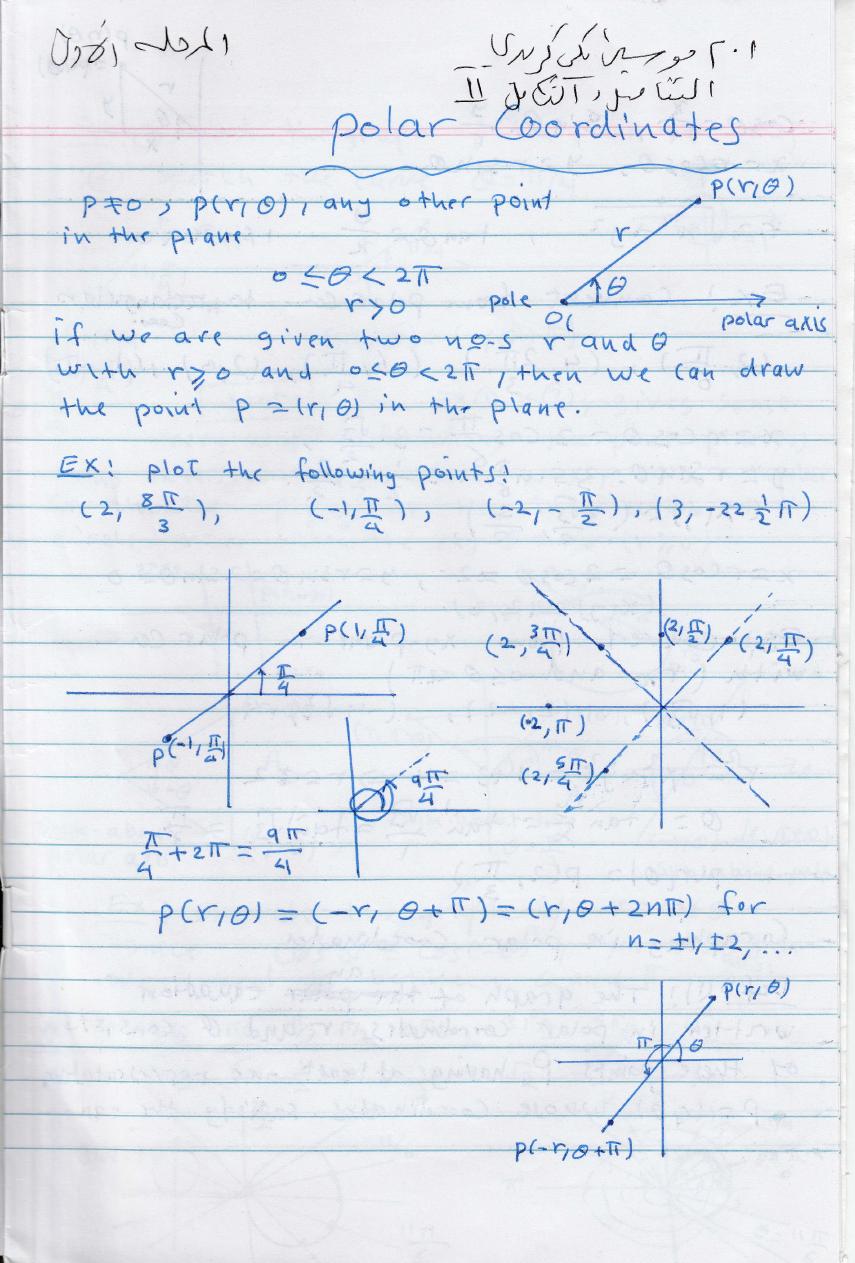 المرحلة الأولى
التفاضل والتكامل II
polar Coordinates
P≠0, P(r, θ), any other point
in the plane
0 ≤ θ < 2π
r > 0
P(r, θ)
r
θ
pole
O
polar axis
if we are given two no-s r and θ
with r ≥ 0 and 0 ≤ θ < 2π, then we can draw
the point P = (r, θ) in the plane.
Ex: plot the following points:
(2, 8π/3), (-1, π/4), (-2, -π/2), (3, -22 1/2 π)
P(1, π/4)
π/4
P(-1, π/4)
(2, 3π/4)
(2, π/2)
(2, π/4)
(2, π)
(2, 5π/4)
9π/4
π/4 + 2π = 9π/4
P(r, θ) = (-r, θ+π) = (r, θ+2nπ) for
n = ±1, ±2, ...
P(r, θ)
π
θ
P(-r, θ+π)